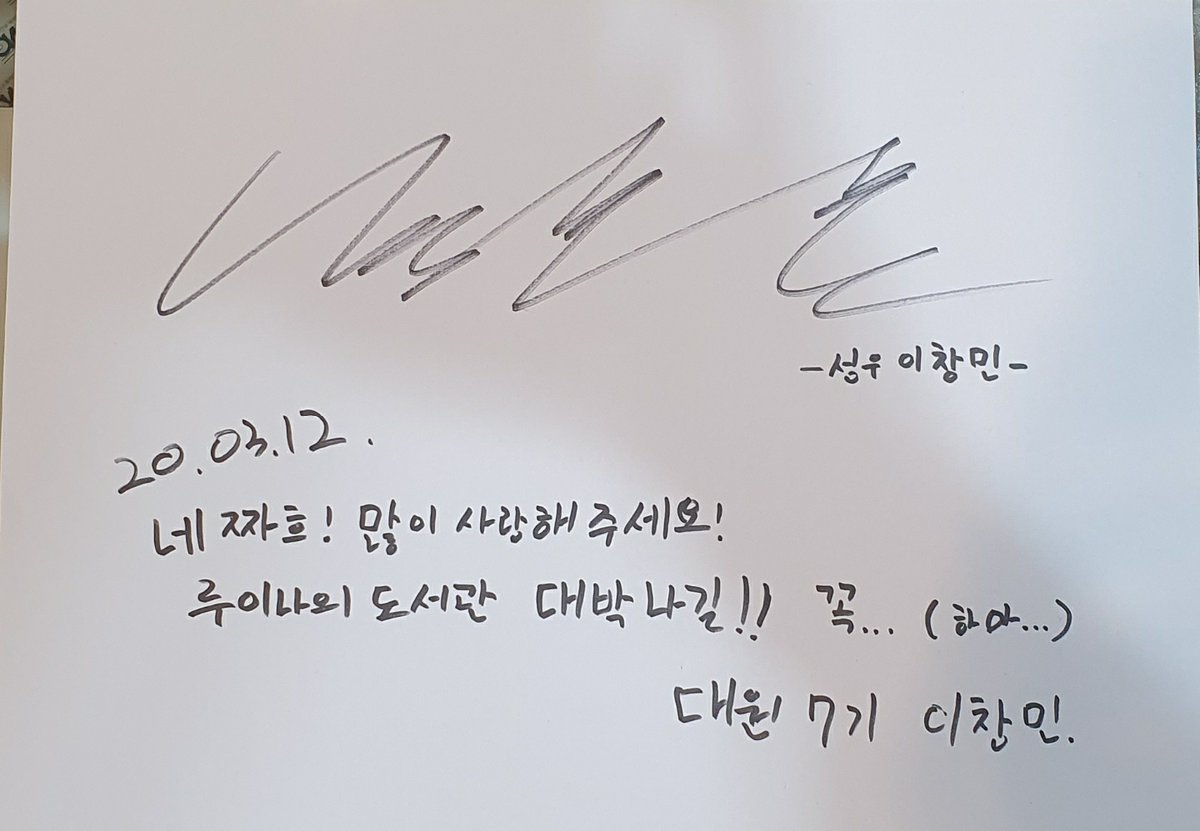 -성우 이창민-
20.03.12.
네 짜흐! 많이 사랑해 주세요!
루이나의 도서관 대박나길!! 꼭... (하아...)
대원 7기 이창민.